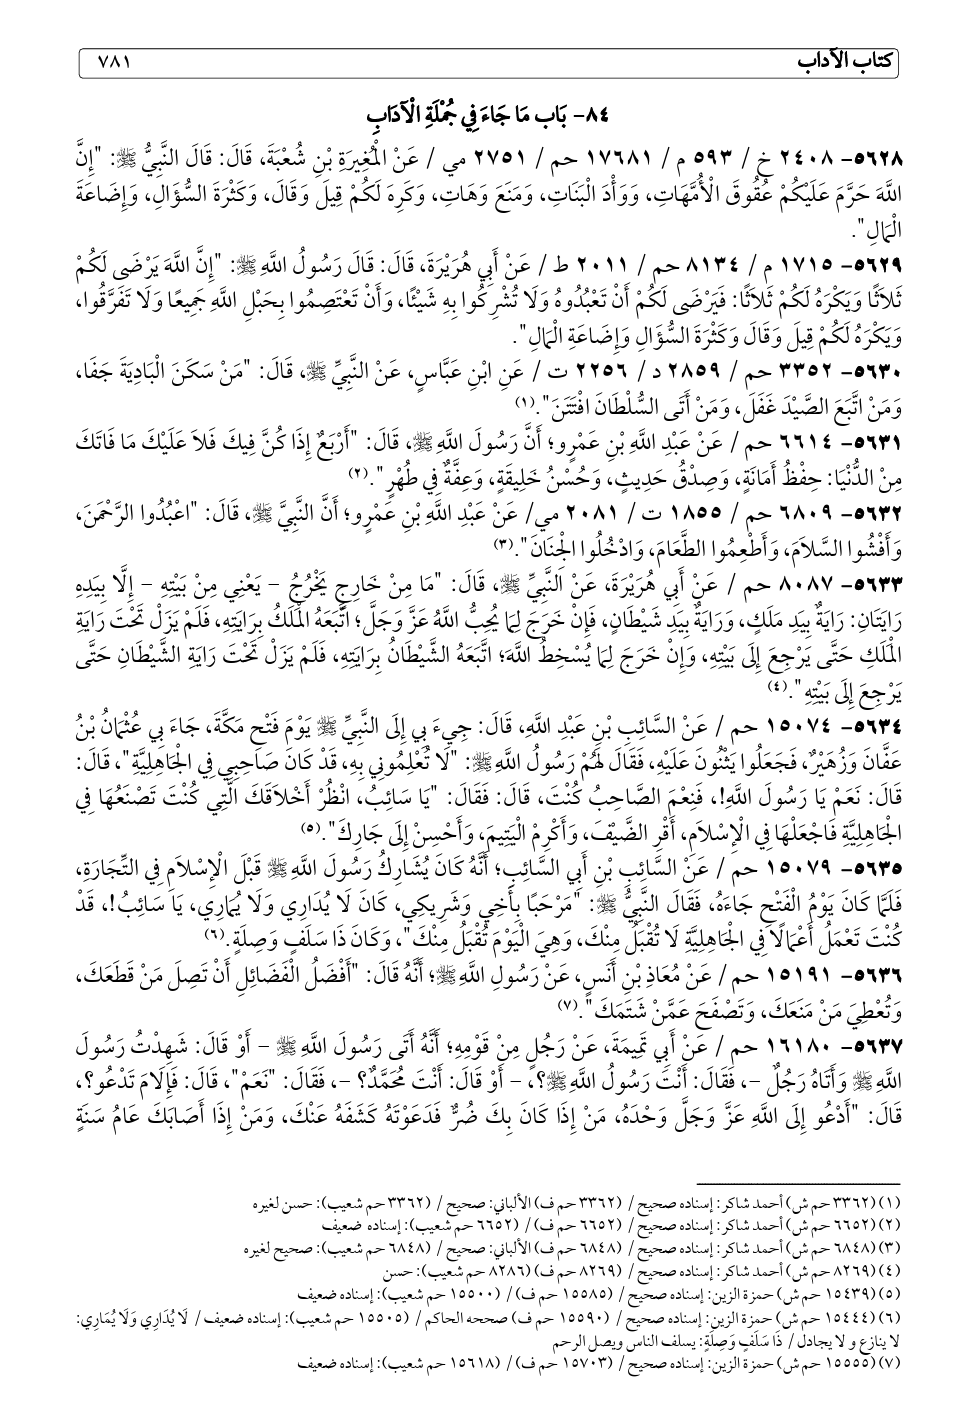 كتاب الآداب ٧٨١
٨٤- بَاب مَا جَاءَ فِي جُمْلَةِ الْآدَابِ
٥٦٢٨- ٢٤٠٨ خ / ٥٩٣ م / ١٧٦٨١ حم / ٢٧٥١ مي / عَنْ الْمُغِيرَةِ بْنِ شُعْبَةَ، قَالَ: قَالَ النَّبِيُّ ﷺ: "إِنَّ
اللَّهَ حَرَّمَ عَلَيْكُمْ عُقُوقَ الْأُمَّهَاتِ، وَوَأْدَ الْبَنَاتِ، وَمَنَعَ وَهَاتِ، وَكَرِهَ لَكُمْ قِيلَ وَقَالَ، وَكَثْرَةَ السُّؤَالِ، وَإِضَاعَةَ
الْمَالِ".
٥٦٢٩- ١٧١٥ م / ٨١٣٤ حم / ٢٠١١ ط / عَنْ أَبِي هُرَيْرَةَ، قَالَ: قَالَ رَسُولُ اللَّهِ ﷺ: "إِنَّ اللَّهَ يَرْضَى لَكُمْ
ثَلَاثًا وَيَكْرَهُ لَكُمْ ثَلَاثًا: فَيَرْضَى لَكُمْ أَنْ تَعْبُدُوهُ وَلَا تُشْرِكُوا بِهِ شَيْئًا، وَأَنْ تَعْتَصِمُوا بِحَبْلِ اللَّهِ جَمِيعًا وَلَا تَفَرَّقُوا،
وَيَكْرَهُ لَكُمْ قِيلَ وَقَالَ وَكَثْرَةَ السُّؤَالِ وَإِضَاعَةِ الْمَالِ".
٥٦٣٠- ٣٣٥٢ حم / ٢٨٥٩ د / ٢٢٥٦ ت / عَنِ ابْنِ عَبَّاسٍ، عَنْ النَّبِيِّ ﷺ، قَالَ: "مَنْ سَكَنَ الْبَادِيَةَ جَفَا،
وَمَنْ اتَّبَعَ الصَّيْدَ غَفَلَ، وَمَنْ أَتَى السُّلْطَانَ افْتَتَنَ".(١)
٥٦٣١- ٦٦١٤ حم / عَنْ عَبْدِ اللَّهِ بْنِ عَمْرٍو؛ أَنَّ رَسُولَ اللَّهِ ﷺ، قَالَ: "أَرْبَعٌ إِذَا كُنَّ فِيكَ فَلاَ عَلَيْكَ مَا فَاتَكَ
مِنْ الدُّنْيَا: حِفْظُ أَمَانَةٍ، وَصِدْقُ حَدِيثٍ، وَحُسْنُ خَلِيقَةٍ، وَعِفَّةٌ فِي طُهْرٍ".(٢)
٥٦٣٢- ٦٨٠٩ حم / ١٨٥٥ ت / ٢٠٨١ مي/ عَنْ عَبْدِ اللَّهِ بْنِ عَمْرٍو؛ أَنَّ النَّبِيَّ ﷺ، قَالَ: "اعْبُدُوا الرَّحْمَنَ،
وَأَفْشُوا السَّلاَمَ، وَأَطْعِمُوا الطَّعَامَ، وَادْخُلُوا الْجِنَانَ".(٣)
٥٦٣٣- ٨٠٨٧ حم / عَنْ أَبِي هُرَيْرَةَ، عَنْ النَّبِيِّ ﷺ، قَالَ: "مَا مِنْ خَارِجٍ يَخْرُجُ - يَعْنِي مِنْ بَيْتِهِ - إِلَّا بِيَدِهِ
رَايَتَانِ: رَايَةٌ بِيَدِ مَلَكٍ، وَرَايَةٌ بِيَدِ شَيْطَانٍ، فَإِنْ خَرَجَ لِمَا يُحِبُّ اللَّهُ عَزَّ وَجَلَّ؛ اتَّبَعَهُ الْمَلَكُ بِرَايَتِهِ، فَلَمْ يَزَلْ تَحْتَ رَايَةِ
الْمَلَكِ حَتَّى يَرْجِعَ إِلَى بَيْتِهِ، وَإِنْ خَرَجَ لِمَا يُسْخِطُ اللَّهَ؛ اتَّبَعَهُ الشَّيْطَانُ بِرَايَتِهِ، فَلَمْ يَزَلْ تَحْتَ رَايَةِ الشَّيْطَانِ حَتَّى
يَرْجِعَ إِلَى بَيْتِهِ".(٤)
٥٦٣٤- ١٥٠٧٤ حم / عَنْ السَّائِبِ بْنِ عَبدِ اللَّهِ، قَالَ: جِيءَ بِي إِلَى النَّبِيِّ ﷺ يَوْمَ فَتْحِ مَكَّةَ، جَاءَ بِي عُثْمَانُ بْنُ
عَفَّانَ وَزُهَيْرٌ، فَجَعَلُوا يَثْنُونَ عَلَيْهِ، فَقَالَ لَهُمْ رَسُولُ اللَّهِ ﷺ: "لَا تُعْلِمُونِي بِهِ، قَدْ كَانَ صَاحِبِي فِي الْجَاهِلِيَّةِ"، قَالَ:
قَالَ: نَعَمْ يَا رَسُولَ اللَّهِ!، فَنِعْمَ الصَّاحِبُ كُنْتَ، قَالَ: فَقَالَ: "يَا سَائِبُ، انْظُرْ أَخْلاَقَكَ الَّتِي كُنْتَ تَصْنَعُهَا فِي
الْجَاهِلِيَّةِ فَاجْعَلْهَا فِي الْإِسْلاَمِ، أَقْرِ الضَّيْفَ، وَأَكْرِمْ الْيَتِيمَ، وَأَحْسِنْ إِلَى جَارِكَ".(٥)
٥٦٣٥- ١٥٠٧٩ حم / عَنْ السَّائِبِ بْنِ أَبِي السَّائِبِ؛ أَنَّهُ كَانَ يُشَارِكُ رَسُولَ اللَّهِ ﷺ قَبْلَ الْإِسْلاَمِ فِي التِّجَارَةِ،
فَلَمَّا كَانَ يَوْمُ الْفَتْحِ جَاءَهُ، فَقَالَ النَّبِيُّ ﷺ: "مَرْحَبًا بِأَخِي وَشَرِيكِي، كَانَ لَا يُدَارِي وَلَا يُمَارِي، يَا سَائِبُ!، قَدْ
كُنْتَ تَعْمَلُ أَعْمَالًا فِي الْجَاهِلِيَّةِ لَا تُقْبَلُ مِنْكَ، وَهِيَ الْيَوْمَ تُقْبَلُ مِنْكَ"، وَكَانَ ذَا سَلَفٍ وَصِلَةٍ.(٦)
٥٦٣٦- ١٥١٩١ حم / عَنْ مُعَاذِ بْنِ أَنَسٍ، عَنْ رَسُولِ اللَّهِ ﷺ؛ أَنَّهُ قَالَ: "أَفْضَلُ الْفَضَائِلِ أَنْ تَصِلَ مَنْ قَطَعَكَ،
وَتُعْطِيَ مَنْ مَنَعَكَ، وَتَصْفَحَ عَمَّنْ شَتَمَكَ".(٧)
٥٦٣٧- ١٦١٨٠ حم / عَنْ أَبِي تَمِيمَةَ، عَنْ رَجُلٍ مِنْ قَوْمِهِ؛ أَنَّهُ أَتَى رَسُولَ اللَّهِ ﷺ - أَوْ قَالَ: شَهِدْتُ رَسُولَ
اللَّهِ ﷺ وَأَتَاهُ رَجُلٌ -، فَقَالَ: أَنْتَ رَسُولُ اللَّهِ ﷺ؟، - أَوْ قَالَ: أَنْتَ مُحَمَّدٌ؟ -، فَقَالَ: "نَعَمْ"، قَالَ: فَإِلَامَ تَدْعُو؟،
قَالَ: "أَدْعُو إِلَى اللَّهِ عَزَّ وَجَلَّ وَحْدَهُ، مَنْ إِذَا كَانَ بِكَ ضُرٌّ فَدَعَوْتَهُ كَشَفَهُ عَنْكَ، وَمَنْ إِذَا أَصَابَكَ عَامُ سَنَةٍ
(١) (٣٣٦٢ حم ش) أحمد شاكر: إسناده صحيح / (٣٣٦٢ حم ف) الألباني: صحيح / (٣٣٦٢ حم شعيب): حسن لغيره
(٢) (٦٦٥٢ حم ش) أحمد شاكر: إسناده صحيح / (٦٦٥٢ حم ف) / (٦٦٥٢ حم شعيب): إسناده ضعيف
(٣) (٦٨٤٨ حم ش) أحمد شاكر: إسناده صحيح / (٦٨٤٨ حم ف) الألباني: صحيح / (٦٨٤٨ حم شعيب): صحيح لغيره
(٤) (٨٢٦٩ حم ش) أحمد شاكر: إسناده صحيح / (٨٢٦٩ حم ف) / (٨٢٨٦ حم شعيب): حسن
(٥) (١٥٤٣٩ حم ش) حمزة الزين: إسناده صحيح / (١٥٥٨٥ حم ف) / (١٥٥٠٠ حم شعيب): إسناده ضعيف
(٦) (١٥٤٤٤ حم ش) حمزة الزين: إسناده صحيح / (١٥٥٩٠ حم ف) صححه الحاكم / (١٥٥٠٥ حم شعيب): إسناده ضعيف / لَا يُدَارِي وَلَا يُمَارِي:
لا ينازع و لا يجادل / ذَا سَلَفٍ وَصِلَةٍ: يسلف الناس ويصل الرحم
(٧) (١٥٥٥٥ حم ش) حمزة الزين: إسناده صحيح / (١٥٧٠٣ حم ف) / (١٥٦١٨ حم شعيب): إسناده ضعيف